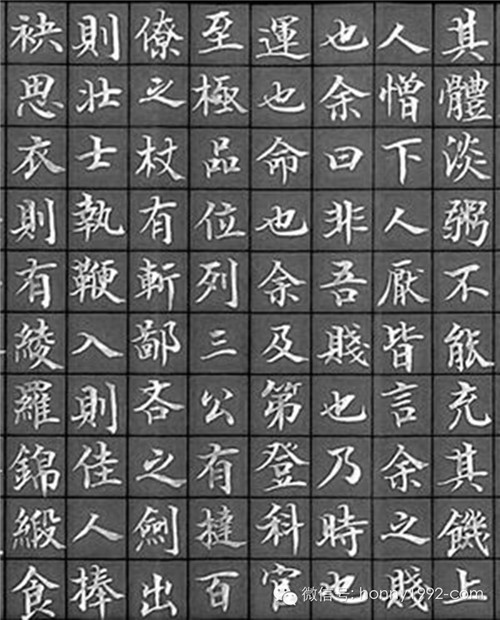 其體淡粥不能充其饑上
人憎下人厭皆言余之賤
也余曰非吾賤也乃時也
運也命也余及第登科官
至極品位列三公有撻百
僚之杖有斬鄙吝之劍出
則壯士執鞭入則佳人捧
袂思衣則有綾羅錦緞食
微信号: honny1992-com